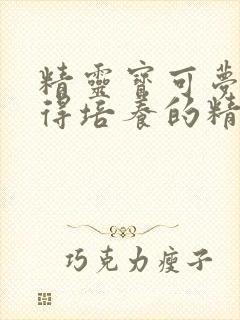 精靈寶可夢
得培養的精
巧克力瘦子